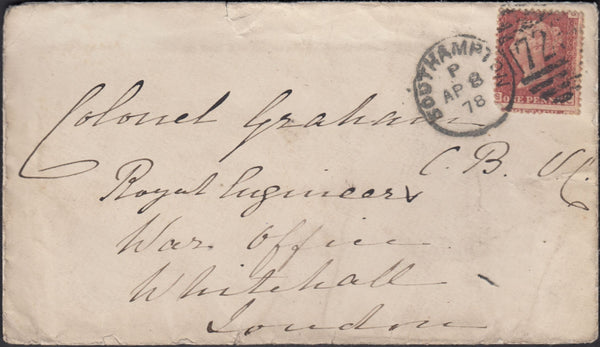 SOUTHAMPTON
P
AP 8
78
72
ONE PENNY
Colonel Graham
C.B. VC
Royal Engineers
War Office
Whitehall
London